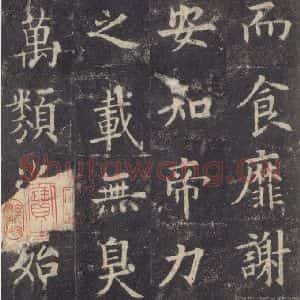 而食靡謝
安知帝力
之載無臭
萬類始
Shufawang.Cn